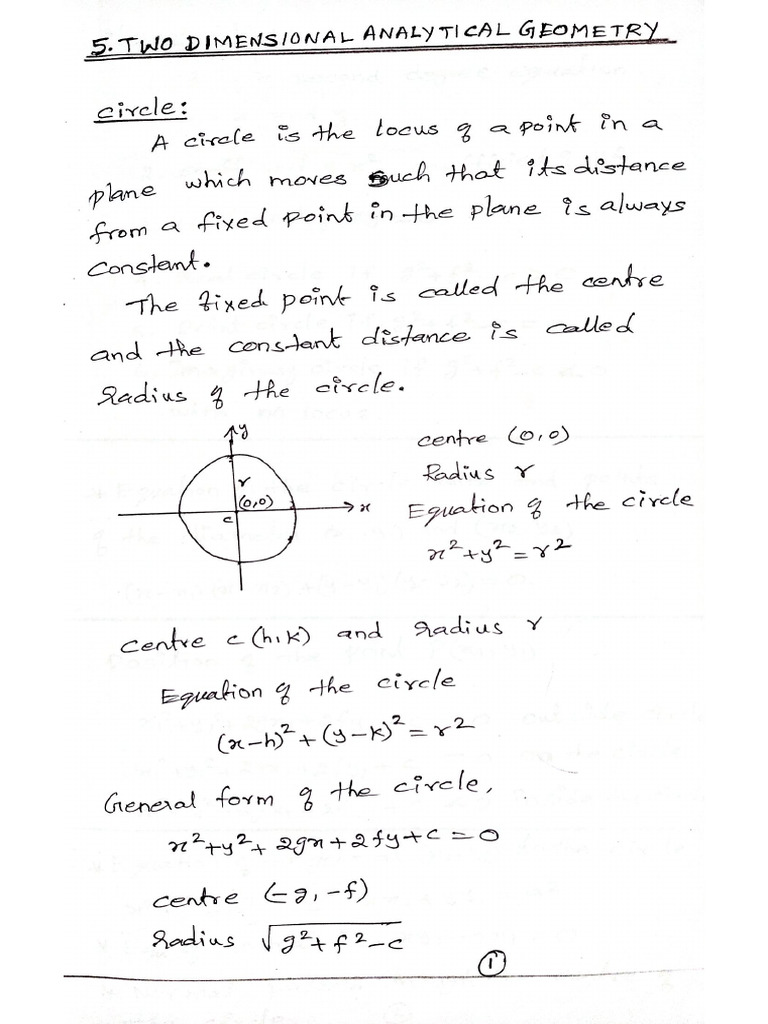 5. TWO DIMENSIONAL ANALYTICAL GEOMETRY
circle:
A circle is the locus of a point in a
plane which moves such that its distance
from a fixed point in the plane is always
constant.
The fixed point is called the centre
and the constant distance is called
Radius of the circle.
y
r
(0,0)
x
c
centre (0,0)
Radius r
Equation of the circle
x²+y²=r²
centre c(h,k) and radius r
Equation of the circle
(x-h)²+(y-k)²=r²
General form of the circle,
x²+y²+2gx+2fy+c=0
centre (-g,-f)
Radius √g²+f²-c
1